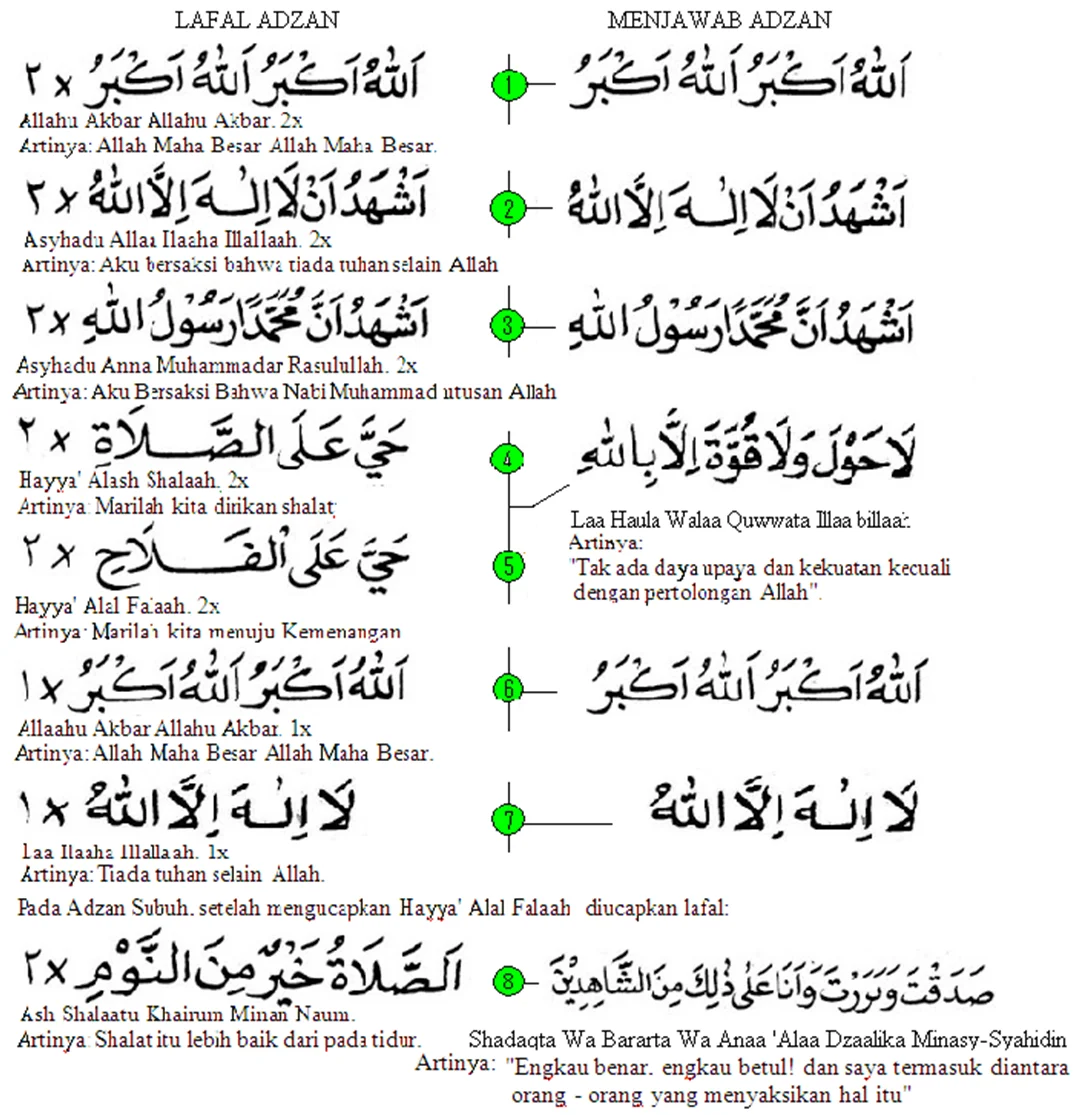 LAFAL ADZAN
MENJAWAB ADZAN
اَللّٰهُ اَكْبَرُ اَللّٰهُ اَكْبَرُ ٢ x
1
اَللّٰهُ اَكْبَرُ اَللّٰهُ اَكْبَرُ
Allahu Akbar Allahu Akbar. 2x
Artinya: Allah Maha Besar Allah Maha Besar.
اَشْهَدُ اَنْ لَا اِلٰهَ اِلَّا اللّٰهُ ٢ x
2
اَشْهَدُ اَنْ لَا اِلٰهَ اِلَّا اللّٰهُ
Asyhadu Allaa Ilaaha Illallaah. 2x
Artinya: Aku bersaksi bahwa tiada tuhan selain Allah
اَشْهَدُ اَنَّ مُحَمَّدًا رَسُوْلُ اللّٰهِ ٢ x
3
اَشْهَدُ اَنَّ مُحَمَّدًا رَسُوْلُ اللّٰهِ
Asyhadu Anna Muhammadar Rasulullah. 2x
Artinya: Aku Bersaksi Bahwa Nabi Muhammad utusan Allah
حَيَّ عَلَى الصَّلَاةِ ٢ x
4
لَا حَوْلَ وَلَا قُوَّةَ اِلَّا بِاللّٰهِ
Hayya' Alash Shalaah. 2x
Artinya: Marilah kita dirikan shalat
Laa Haula Walaa Quwwata Illaa billaah
Artinya:
"Tak ada daya upaya dan kekuatan kecuali
dengan pertolongan Allah".
حَيَّ عَلَى الْفَلَاحِ ٢ x
5
Hayya' Alal Falaah. 2x
Artinya: Marilah kita menuju Kemenangan
اَللّٰهُ اَكْبَرُ اَللّٰهُ اَكْبَرُ ١ x
6
اَللّٰهُ اَكْبَرُ اَللّٰهُ اَكْبَرُ
Allaahu Akbar Allahu Akbar. 1x
Artinya: Allah Maha Besar Allah Maha Besar.
لَا اِلٰهَ اِلَّا اللّٰهُ ١ x
7
لَا اِلٰهَ اِلَّا اللّٰهُ
Laa Ilaaha Illallaah. 1x
Artinya: Tiada tuhan selain Allah.
Pada Adzan Subuh, setelah mengucapkan Hayya' Alal Falaah diucapkan lafal:
اَلصَّلَاةُ خَيْرٌ مِنَ النَّوْمِ ٢ x
8
صَدَقْتَ وَبَرَرْتَ وَاَنَا عَلٰى ذٰلِكَ مِنَ الشَّاهِدِيْنَ
Ash Shalaatu Khairum Minan Naum.
Artinya: Shalat itu lebih baik dari pada tidur.
Shadaqta Wa Bararta Wa Anaa 'Alaa Dzaalika Minasy-Syahidin
Artinya: "Engkau benar, engkau betul! dan saya termasuk diantara
orang - orang yang menyaksikan hal itu"